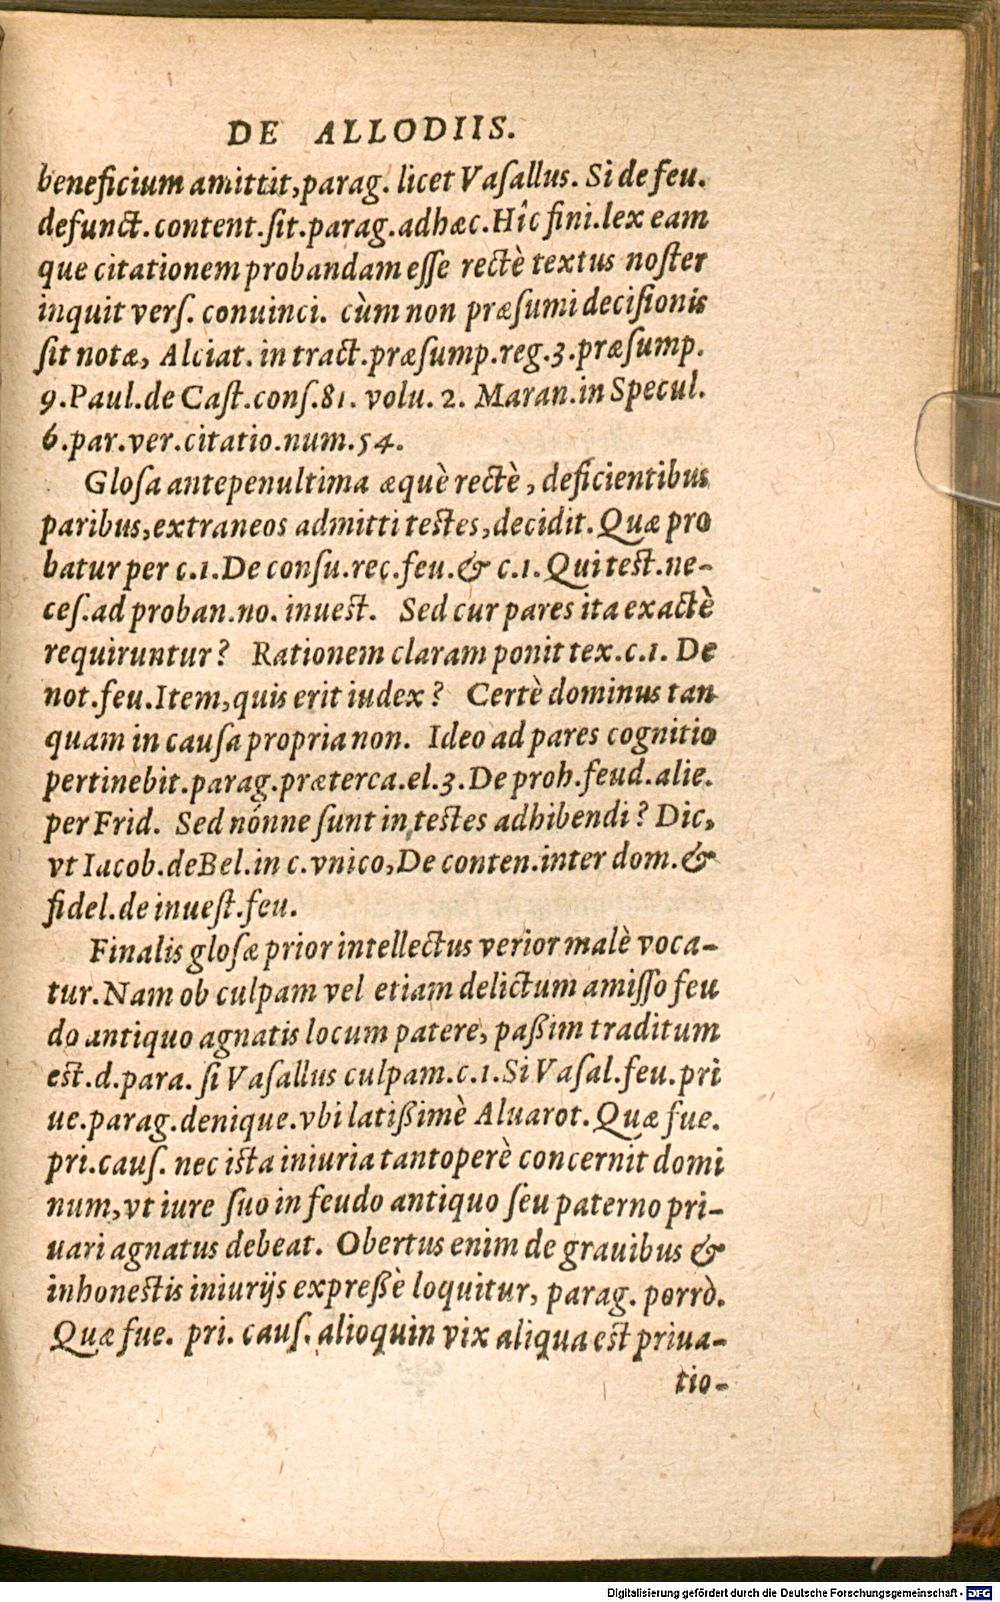 DE ALLODIIS.
beneficium amittit, parag. licet Vaſallus. Si de feu.
defunct. content. ſit. parag. adhæc. Hîc fini. lex eam
que citationem probandam eſſe rectè textus noſter
inquit verſ. conuinci. cùm non præſumi deciſionis
ſit notæ, Alciat. in tract. præſump. reg. 3. præſump.
9. Paul. de Caſt. conſ. 81. volu. 2. Maran. in Specul.
6. par. ver. citatio. num. 54.
Gloſa antepenultima æquè rectè, deficientibus
paribus, extraneos admitti teſtes, decidit. Quæ pro
batur per c. 1. De conſu. rec. feu. & c. 1. Qui teſt. ne-
ceſ. ad proban. no. inueſt. Sed cur pares ita exactè
requiruntur? Rationem claram ponit tex. c. 1. De
not. feu. Item, quis erit iudex? Certè dominus tan
quam in cauſa propria non. Ideo ad pares cognitio
pertinebit. parag. præterca. el. 3. De proh. feud. alie.
per Frid. Sed nónne ſunt in teſtes adhibendi? Dic,
vt Iacob. de Bel. in c. vnico, De conten. inter dom. &
fidel. de inueſt. feu.
Finalis gloſæ prior intellectus verior malè voca-
tur. Nam ob culpam vel etiam delictum amiſſo feu
do antiquo agnatis locum patere, paßim traditum
eſt. d. para. ſi Vaſallus culpam. c. 1. Si Vaſal. feu. pri
ue. parag. denique. vbi latißimè Aluarot. Quæ fue.
pri. cauſ. nec iſta iniuria tantoperè concernit domi
num, vt iure ſuo in feudo antiquo ſeu paterno pri-
uari agnatus debeat. Obertus enim de grauibus &
inhoneſtis iniurijs expreßè loquitur, parag. porrò.
Quæ fue. pri. cauſ. alioquin vix aliqua eſt priua-
tio-
Digitalisierung gefördert durch die Deutsche Forschungsgemeinschaft - DFG